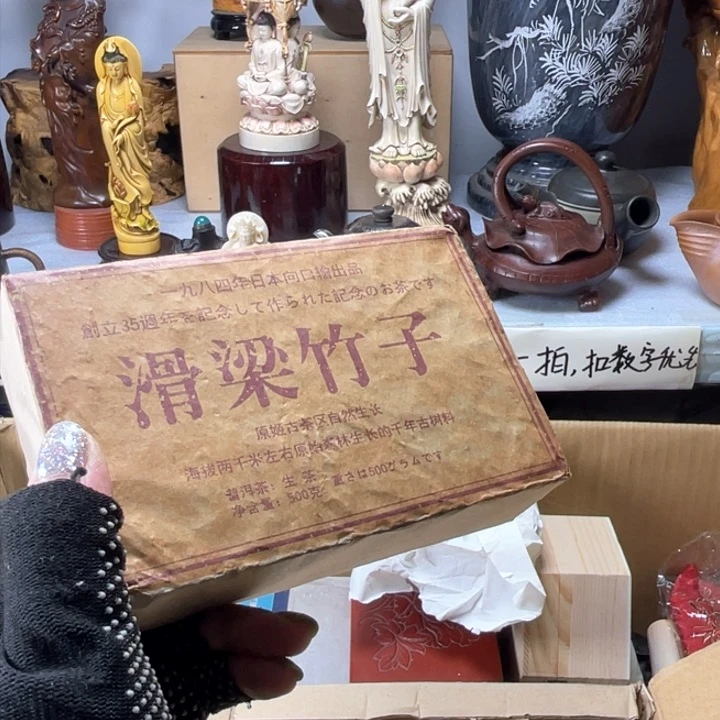 一九八四年日本向口输出品
創立35週年を記念して作られた記念のお茶です
滑梁竹子
原始古茶区自然生长
海拔两千米左右原始森林生长的千年古树料
普洱茶：生茶 重さは500グラムです
净含量：500克
一拍，扣数字优先